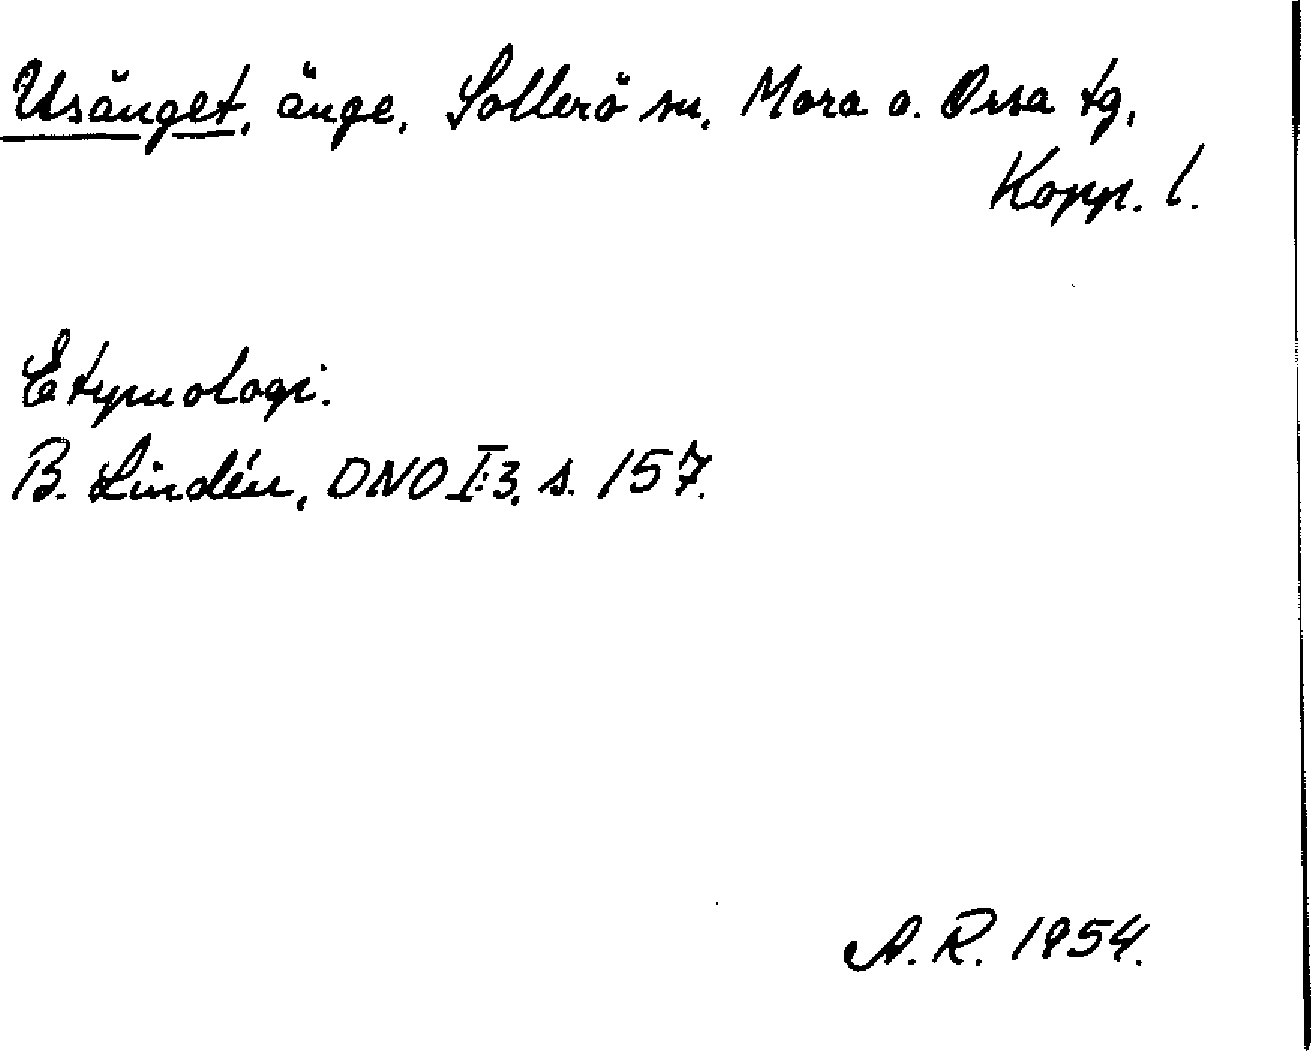 Usänget, änge, Sollerö sn, Mora o. Orsa tg,
Kopp. l.
Etymologi.
B. Lindén, DNO I:3, s. 157.
A. R. 1954.